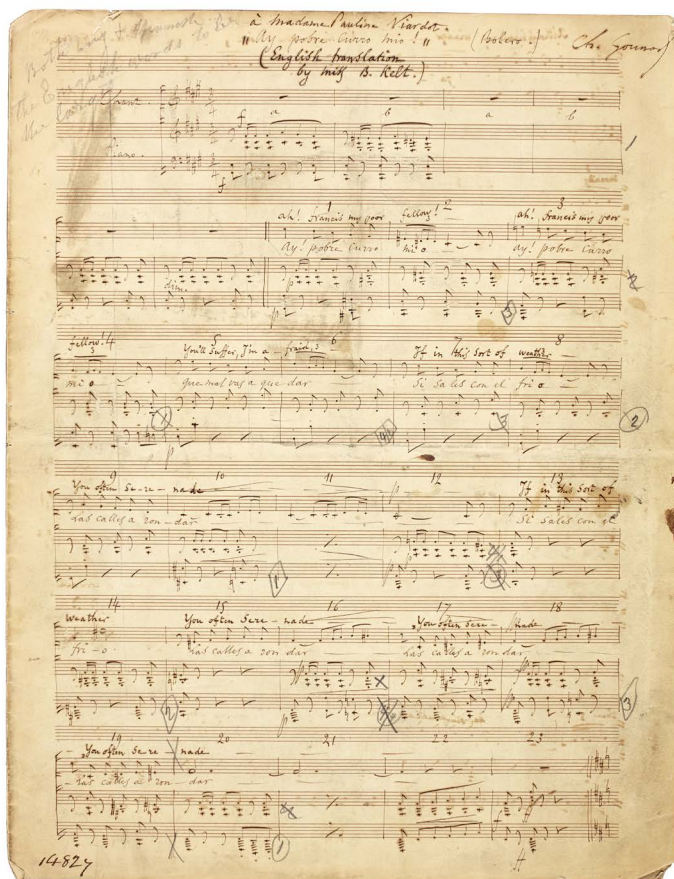 à Madame Pauline Viardot.
"Ay pobre Curro mio!" (Bolero.) Ch. Gounod
(English translation
by Miss B. Kelt.)
Both Eng & Spanish
the English words to be
the largest
a b a b
Piano. 1
f
f
1 2 3
ah! Francis my poor fellow! ah! Francis my poor
Ay! pobre Curro mio Ay! pobre Curro
dim.
p
p
4 5 6 7 8
fellow! You'll suffer, I'm a-fraid, If in this sort of weather
mio que mal vas a que dar Si sales con el frio
p
2
9 10 11 12 13
You often se-re-nade If in this sort of
Las calles a ron-dar Si sales con el
p
p
1
14 15 16 17 18
weather You often Sere-nade You often Sere-nade
fri-o Las calles a ron dar Las calles a ron dar
2 3
19 20 21 22 23
You often Se-re-nade
Las calles a ron-dar
f
1
ff
14827